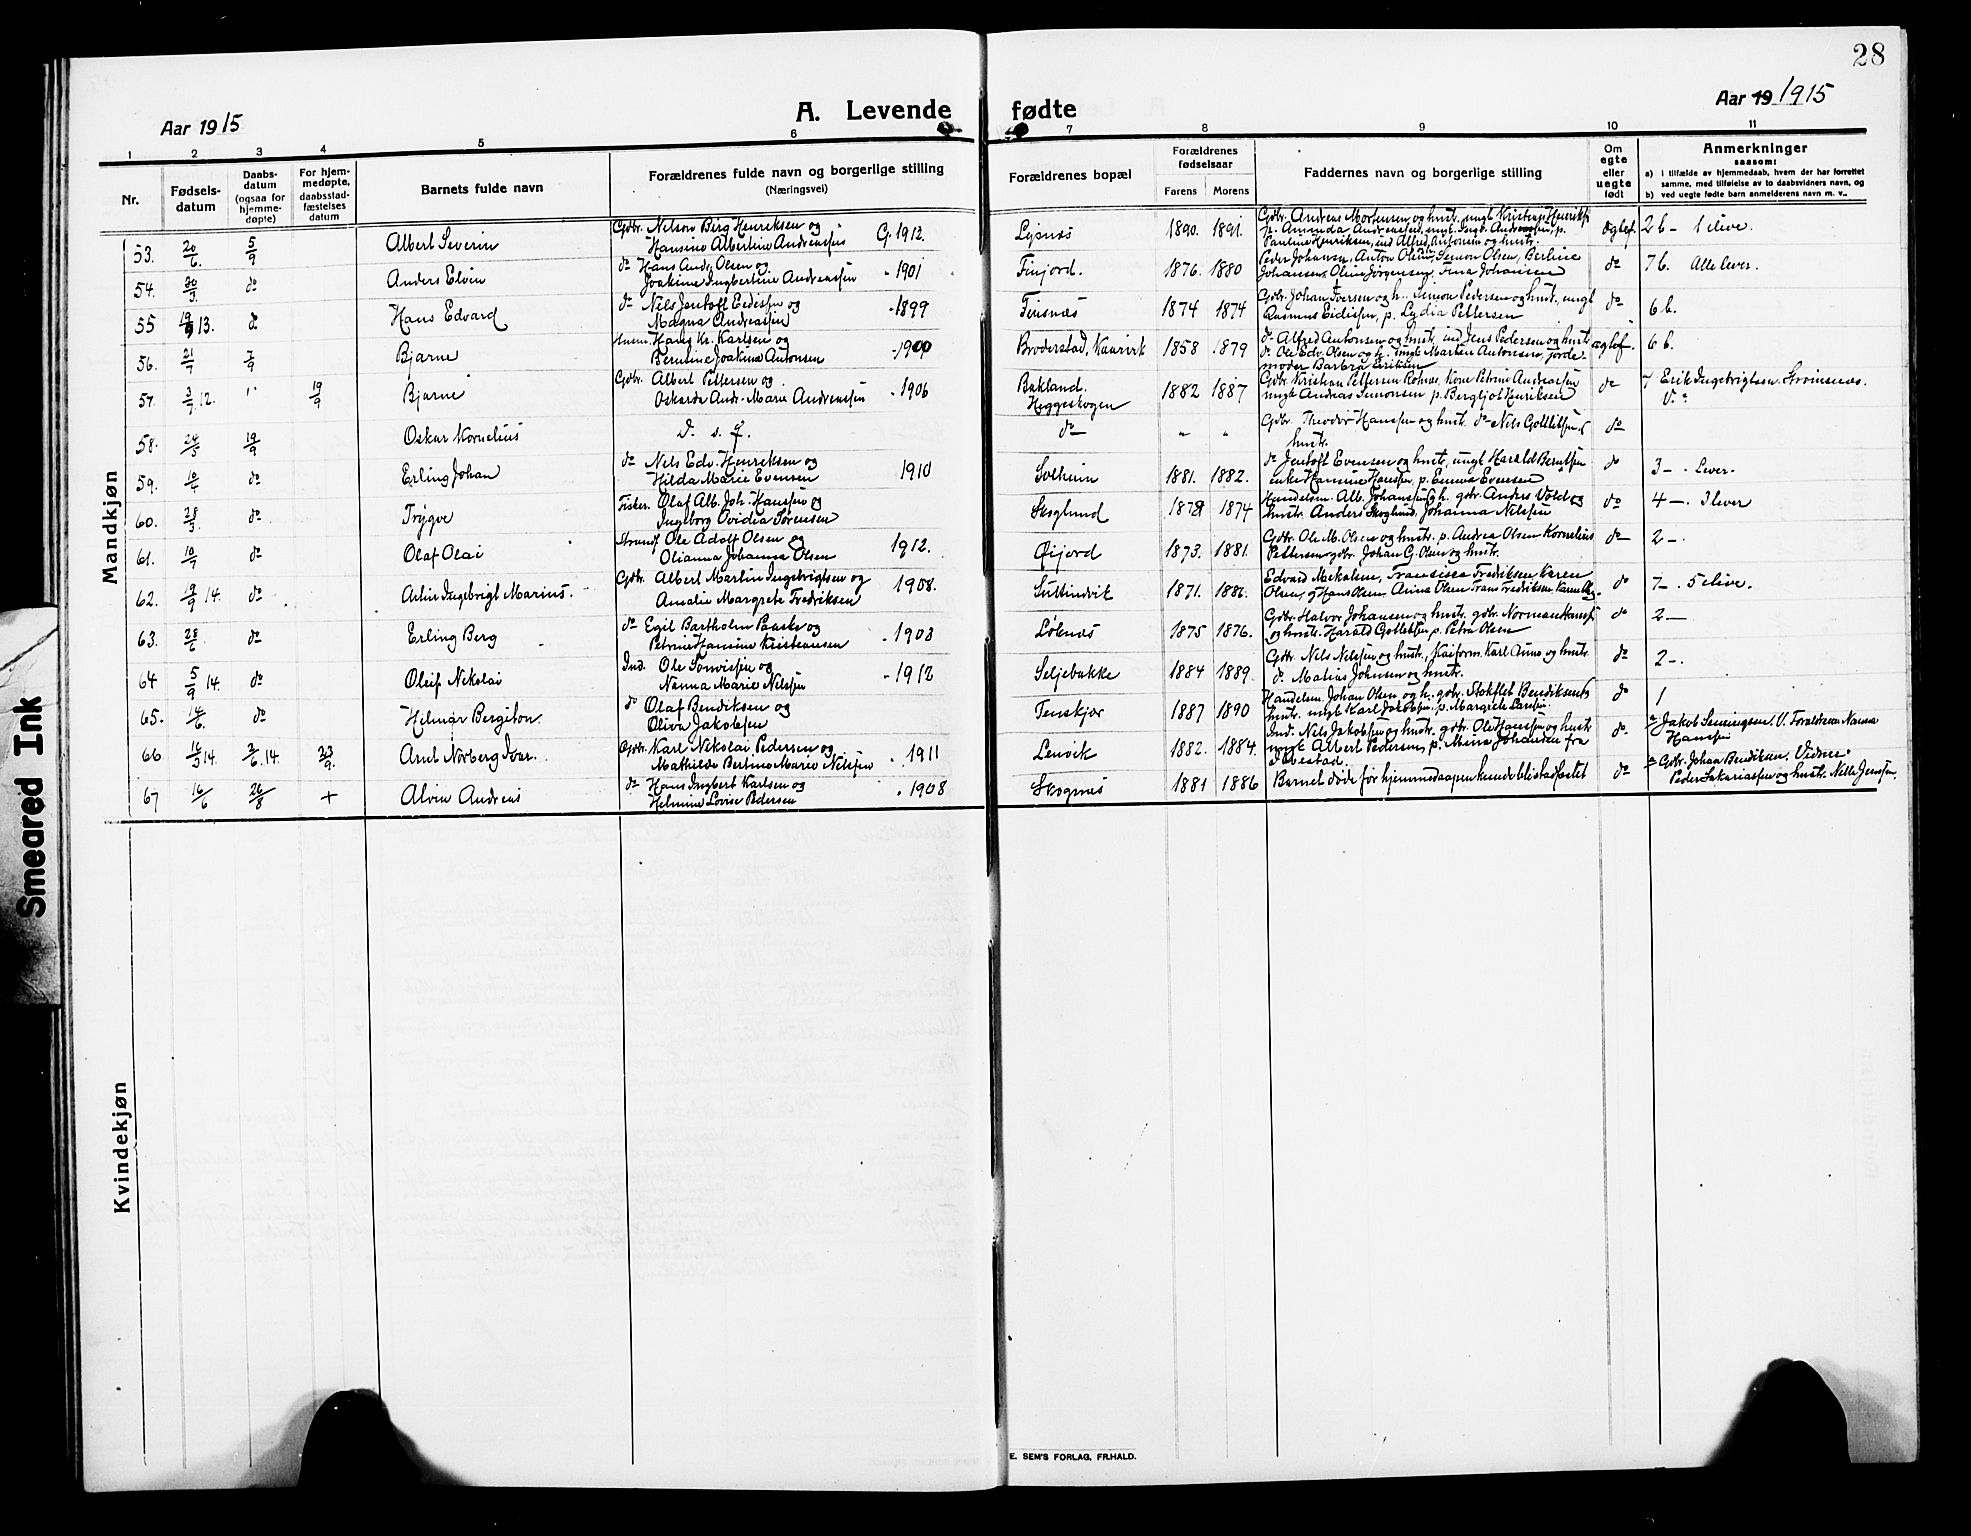 28
Aar 1915
A. Levende fødte
Aar 19 1915
1 2 3 4 5 6 7 8 9 10 11
Nr.
Fødsels-
datum
Daabs-
datum
(ogsaa for
hjemme-
døpte)
For hjem-
medøpte,
daabsstad-
fæstelses
datum
Barnets fulde navn
Forældrenes fulde navn og borgerlige stilling
(Næringsvei)
Forældrenes bopæl
Forældrenes
fødselsaar
Farens Morens
Faddernes navn og borgerlige stilling
Om
egte
eller
uegte
født
Anmerkninger
saasom:
a) i tilfælde av hjemmedaab, hvem der har forrettet
samme, med tilføielse av to daabsvidners navn, og
b) ved uegte fødte barn anmelderens navn m. v..
Mandkjøn
53. 20/6. 5/9 Albert Severin Gdbr. Nelson Berg Henriksen og
Hansine Albertine Andreassen G. 1912. 1890. 1891. 2 b - 1 ilive.
54. 30/3. do Anders Elvin do Hans Andr. Olsen og
Joakine Ingbertine Andreassen - 1901 Finjord. 1876. 1880 Peder Johansen, Anton Olsen, Simon Olsen, Berline
Johansen, Oline Jørgensen, Fina Johansen do 7 b. Alle lever.
55 13. Hans Edvard do Nels Jentoft Eedessen og
Magna Andreassen - 1899 Finsnæs 1874 1874 Gdbr. Johan Iversen og h. Simon Pedersen og hustr. ungk.
Rasmus Eidissen, p. Lydia Pettersen do 6 b.
56. 21/7 7/9 Bjarne Husm. Hans Kr. Karlsen og
Berntine Joakima Antonsen - 1900 Broderstad, Kaarvik 1858 1879 do Alfred Antonsen og hustr. ind Jens Pedersen og hustr.
do Ole Edv. Olsen og h. ungk. Martin Antonsen, jorde-
moder Barbra Eriksen 6 b.
57. 3/7. 12. 19/9 Bjarne Gdbr. Albert Pettersen og
Oskarda Andr. Marie Andreassen - 1906 Bakland.
Heggeskogen 1882 1887 Gdbr. Kristian Pettersen Kone Petrine Andreassen
ungk Andreas Simonsen p. Bergljot Henriksen do 7 Erik Ingebrigtsen.
58. 24/5 19/9 Oskar Kornelius D. s. f. do „ „ Gdbr. Theodor Hanssen og hustr. do Nils Gotlibsen
hustr. do
59. 10/4 do Erling Johan do Nels Edv. Henriksen og
Hilda Marie Evensen 1910 Solheim 1881. 1882. do Jentoft Evensen og hustr, ungk Harald Berntsen
enke Hansine Hanssen, p. Emma Evensen do 3 - . Lever.
60. 28/3. do Trygve Fisker. Olaf Alb. Joh. Hanssen og
Ingeborg Ovidia Sørensen Skoglund 1874 Handelsm. Alb. Johanssen og h. gdbr. Anders Vold og
hustr. Anders Skoglund, Johanna Nilssen do 4 -. 3 lever
61. 10/7 do Olaf Olai Strands. Ole Adolf Olsen og
Olianna Johanna Olsen 1912. Øijord 1873. 1881. Gdbr. Ole M. Olsen og hustr. p. Andrea Olsen Kornelius
Pettersen gdbr. Johan G. Olsen og hustr. do 2 -.
62. 19/9 14. do Artin Ingebrigt Marius. Gdbr. Albert Martin Ingebrigtsen og
Amalie Margrete Fredriksen 1908. Sultindvik 1871. 1886. Edvard Mikalsen, Fransiska Fredriksen Karen
Olsen, Hans Olsen. Anna Olsen Frans Fredriksen do 7 -. 5 ilive.
63. 28/6. do Erling Berg do Egil Bartholm Paaske og
Petrine Hansine Kristensen - 1903 Løknæs 1875 1876. Gdbr. Halvor Johansen og hustr. gdbr. Norman Hanssen
og hustr. Harald Gotlibsen p. Petra Olsen do 2 -
64 5/9 14. do Oleif Nikolai Ind. Ole Tønvissen og
Nanna Marie Nilssen - 1912 Seljebakke 1884 1889. Gdbr. Nils Nelssen og hustr., Karl Arno og hustr.
do. Matias Johnsen og hustr. do 2 -.
65. 14/6. do Helmer Bergiton. do Olaf Bendiksen og
Oliva Jakobsen Tenskjær 1887 1890 Handelsm. Johan Olsen og h. gdbr. Stokflet Bendiksen
hustr. ungk Karl Jakobsen p. Margrete Larsen. do 1
66. 16/3 14. 3/6. 14. 23/9. Arnt Norberg Ivar. Gdbr. Karl Nikolai Pedersen og
Mathilde Bertine Marie Nelssen . 1911 Lenvik 1882. 1884. Ind. Nils Jakobsen og hustr. gdbr. Ole Hanssen og hustr
ungk Albert Pedersen, p. Mina Johansen fra
do. Jakob Henningsen. V. Forældrene Nanna
Hanssen
67 16/6 26/8 + Alvin Andreas do Hans Ingbert Karlsen og
Helmine Lovise Pedersen . 1908 Skognæs 1881 1886 Barnet døde før hjemmedaapen kunde bli stadfæstet do Gdbr. Johan Bendiksen. Vidner
Peder Sakariassen og hustr. Nella Jenssen.
Kvindekjøn
Smeared Ink
E. SEM'S FORLAG, FR.HALD.